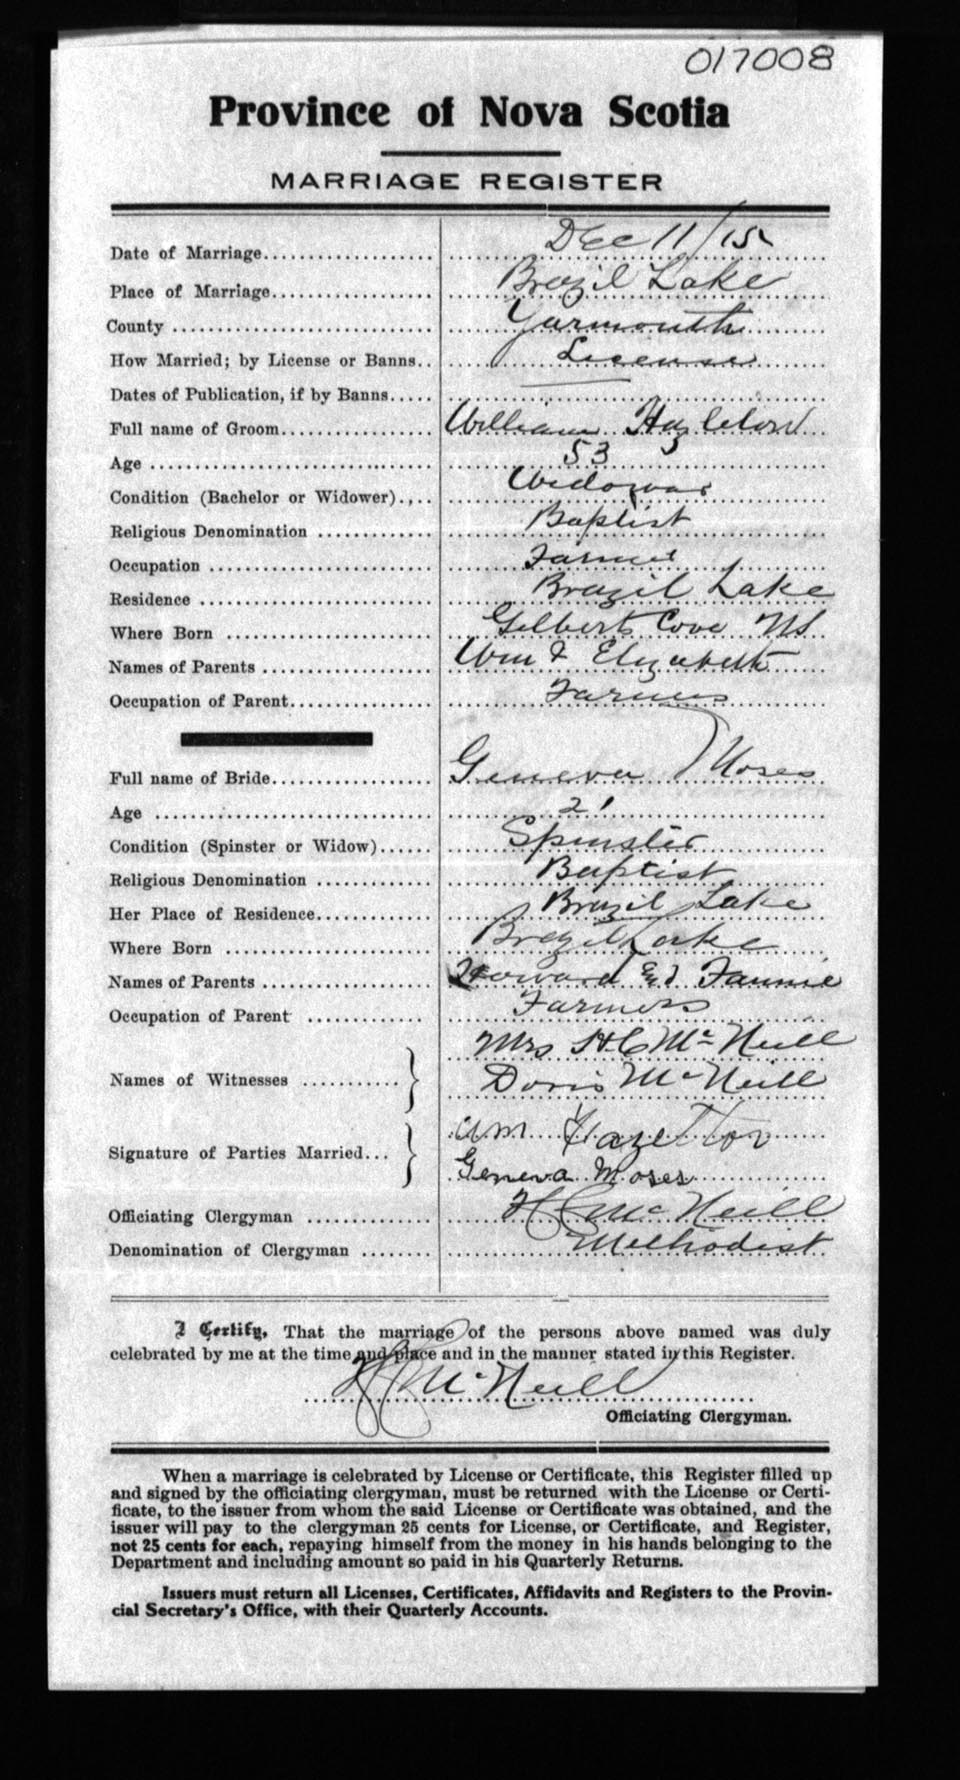 017008
Province of Nova Scotia
MARRIAGE REGISTER
Date of Marriage.................... Dec 11/15
Place of Marriage................... Brazil Lake
County .............................. Yarmouth
How Married; by License or Banns.. License
Dates of Publication, if by Banns..... —
Full name of Groom.................. William
Age ................................. 53
Condition (Bachelor or Widower)..... Widower
Religious Denomination ............. Baptist
Occupation ......................... Farmer
Residence .......................... Brazil Lake
Where Born ........................ Gilberts Cove NS
Names of Parents ................... Wm & Elizabeth
Occupation of Parent................. Farmers
Full name of Bride................... Geneva Moses
Age ................................. 21
Condition (Spinster or Widow)...... Spinster
Religious Denomination ............. Baptist
Her Place of Residence.............. Brazil Lake
Where Born ........................ Brazil Lake
Names of Parents ................... Howard & Fannie
Occupation of Parent ............. Farmers
Names of Witnesses ........... } Mrs H. C. McNeill
Doris McNeill
Signature of Parties Married... } Wm
Geneva Moses
Officiating Clergyman ............. H C McNeill
Denomination of Clergyman ........ Methodist
I Certify, That the marriage of the persons above named was duly
celebrated by me at the time and place and in the manner stated in this Register.
H C McNeill
Officiating Clergyman.
When a marriage is celebrated by License or Certificate, this Register filled up
and signed by the officiating clergyman, must be returned with the License or Certi-
ficate, to the issuer from whom the said License or Certificate was obtained, and the
issuer will pay to the clergyman 25 cents for License, or Certificate, and Register,
not 25 cents for each, repaying himself from the money in his hands belonging to the
Department and including amount so paid in his Quarterly Returns.
Issuers must return all Licenses, Certificates, Affidavits and Registers to the Provin-
cial Secretary's Office, with their Quarterly Accounts.